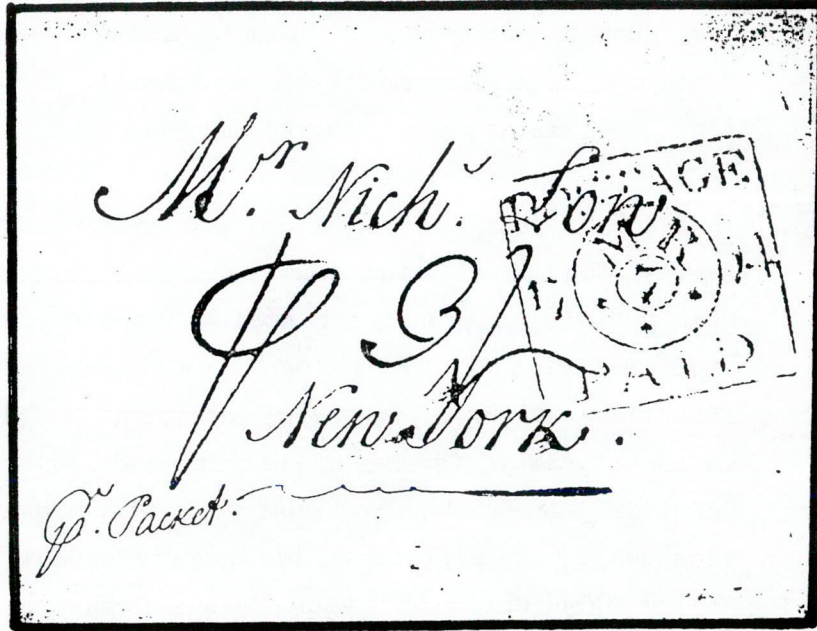 Mr. Nichs. Low
POSTAGE
MR
7
PAID
P 3/
New York.
Pr. Packet.